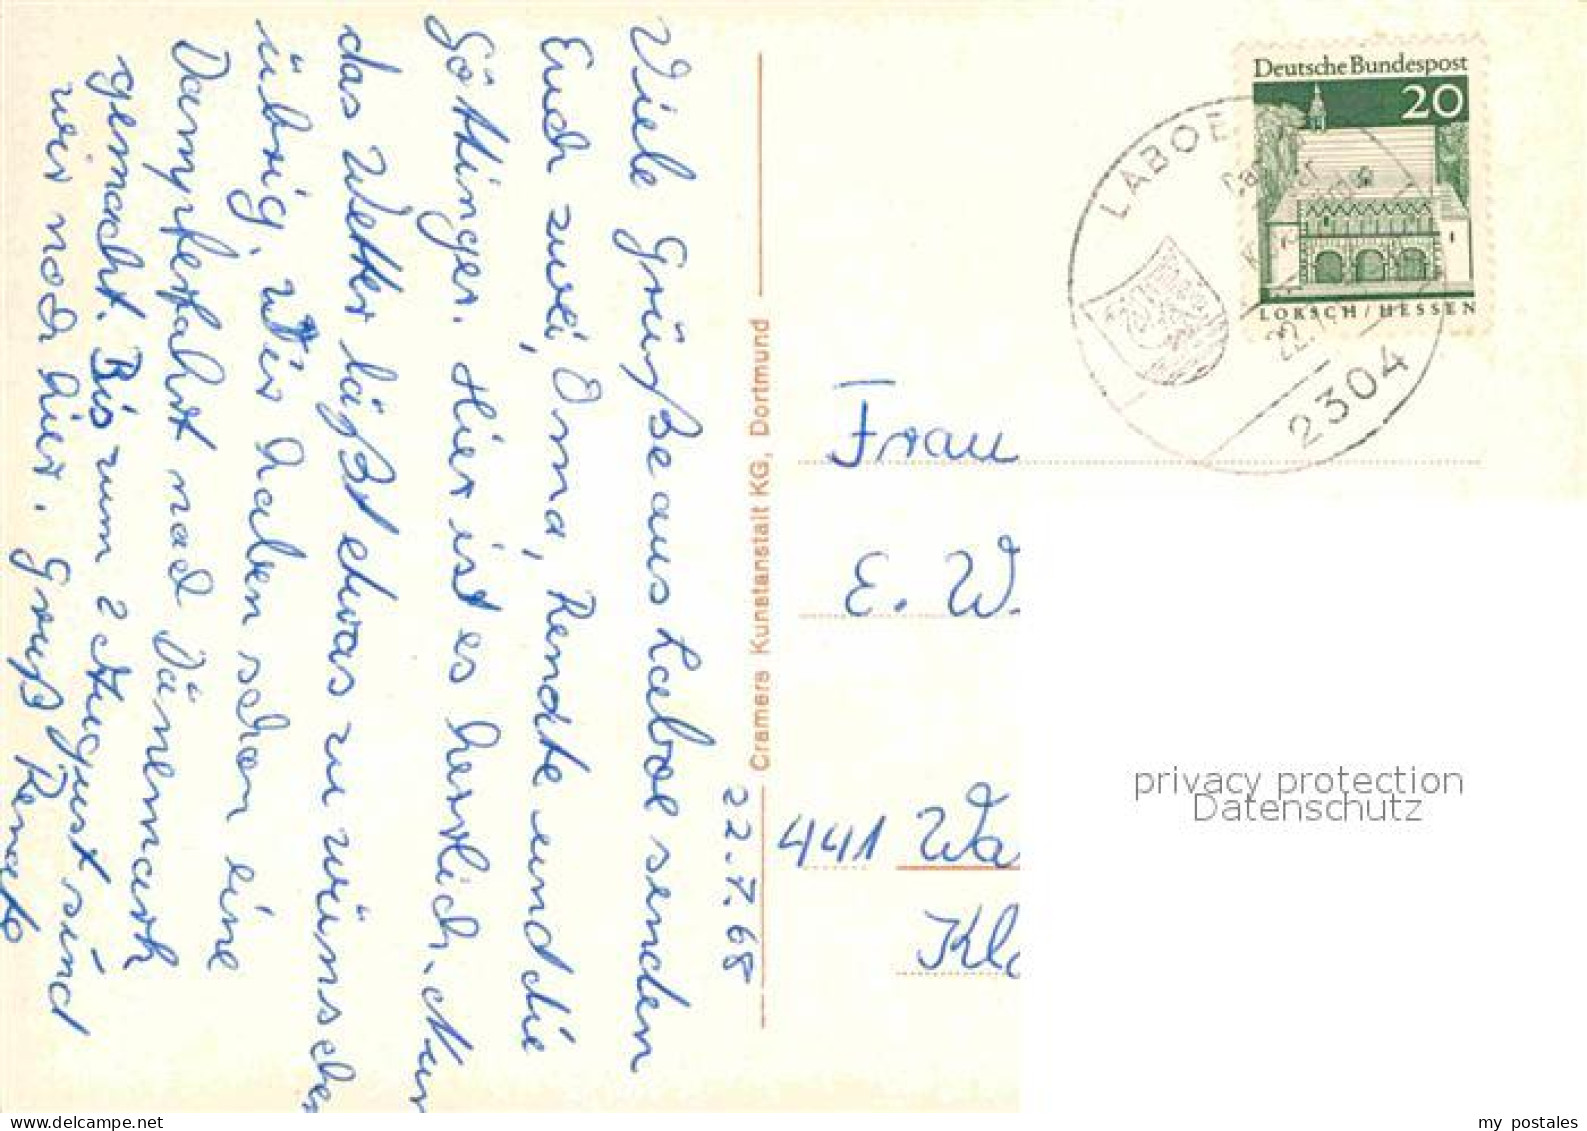 Viele Grüße aus Laboe senden
Euch zwei, Oma, Renate und die
Göttinger. Hier ist es herrlich. Nur
das Wetter läßt etwas zu wünschen
übrig. Wir haben schon eine
Dampferfahrt nach Dänemark
gemacht. Bis zum 2 August sind
wir noch hier. Gruß Renate
22.7.68
Cramers Kunstanstalt KG, Dortmund
Deutsche Bundespost
20
LORSCH/HESSEN
LABOE
22.
2304
Frau
E. W.
441 Wa
Kl
privacy protection
Datenschutz
my postales